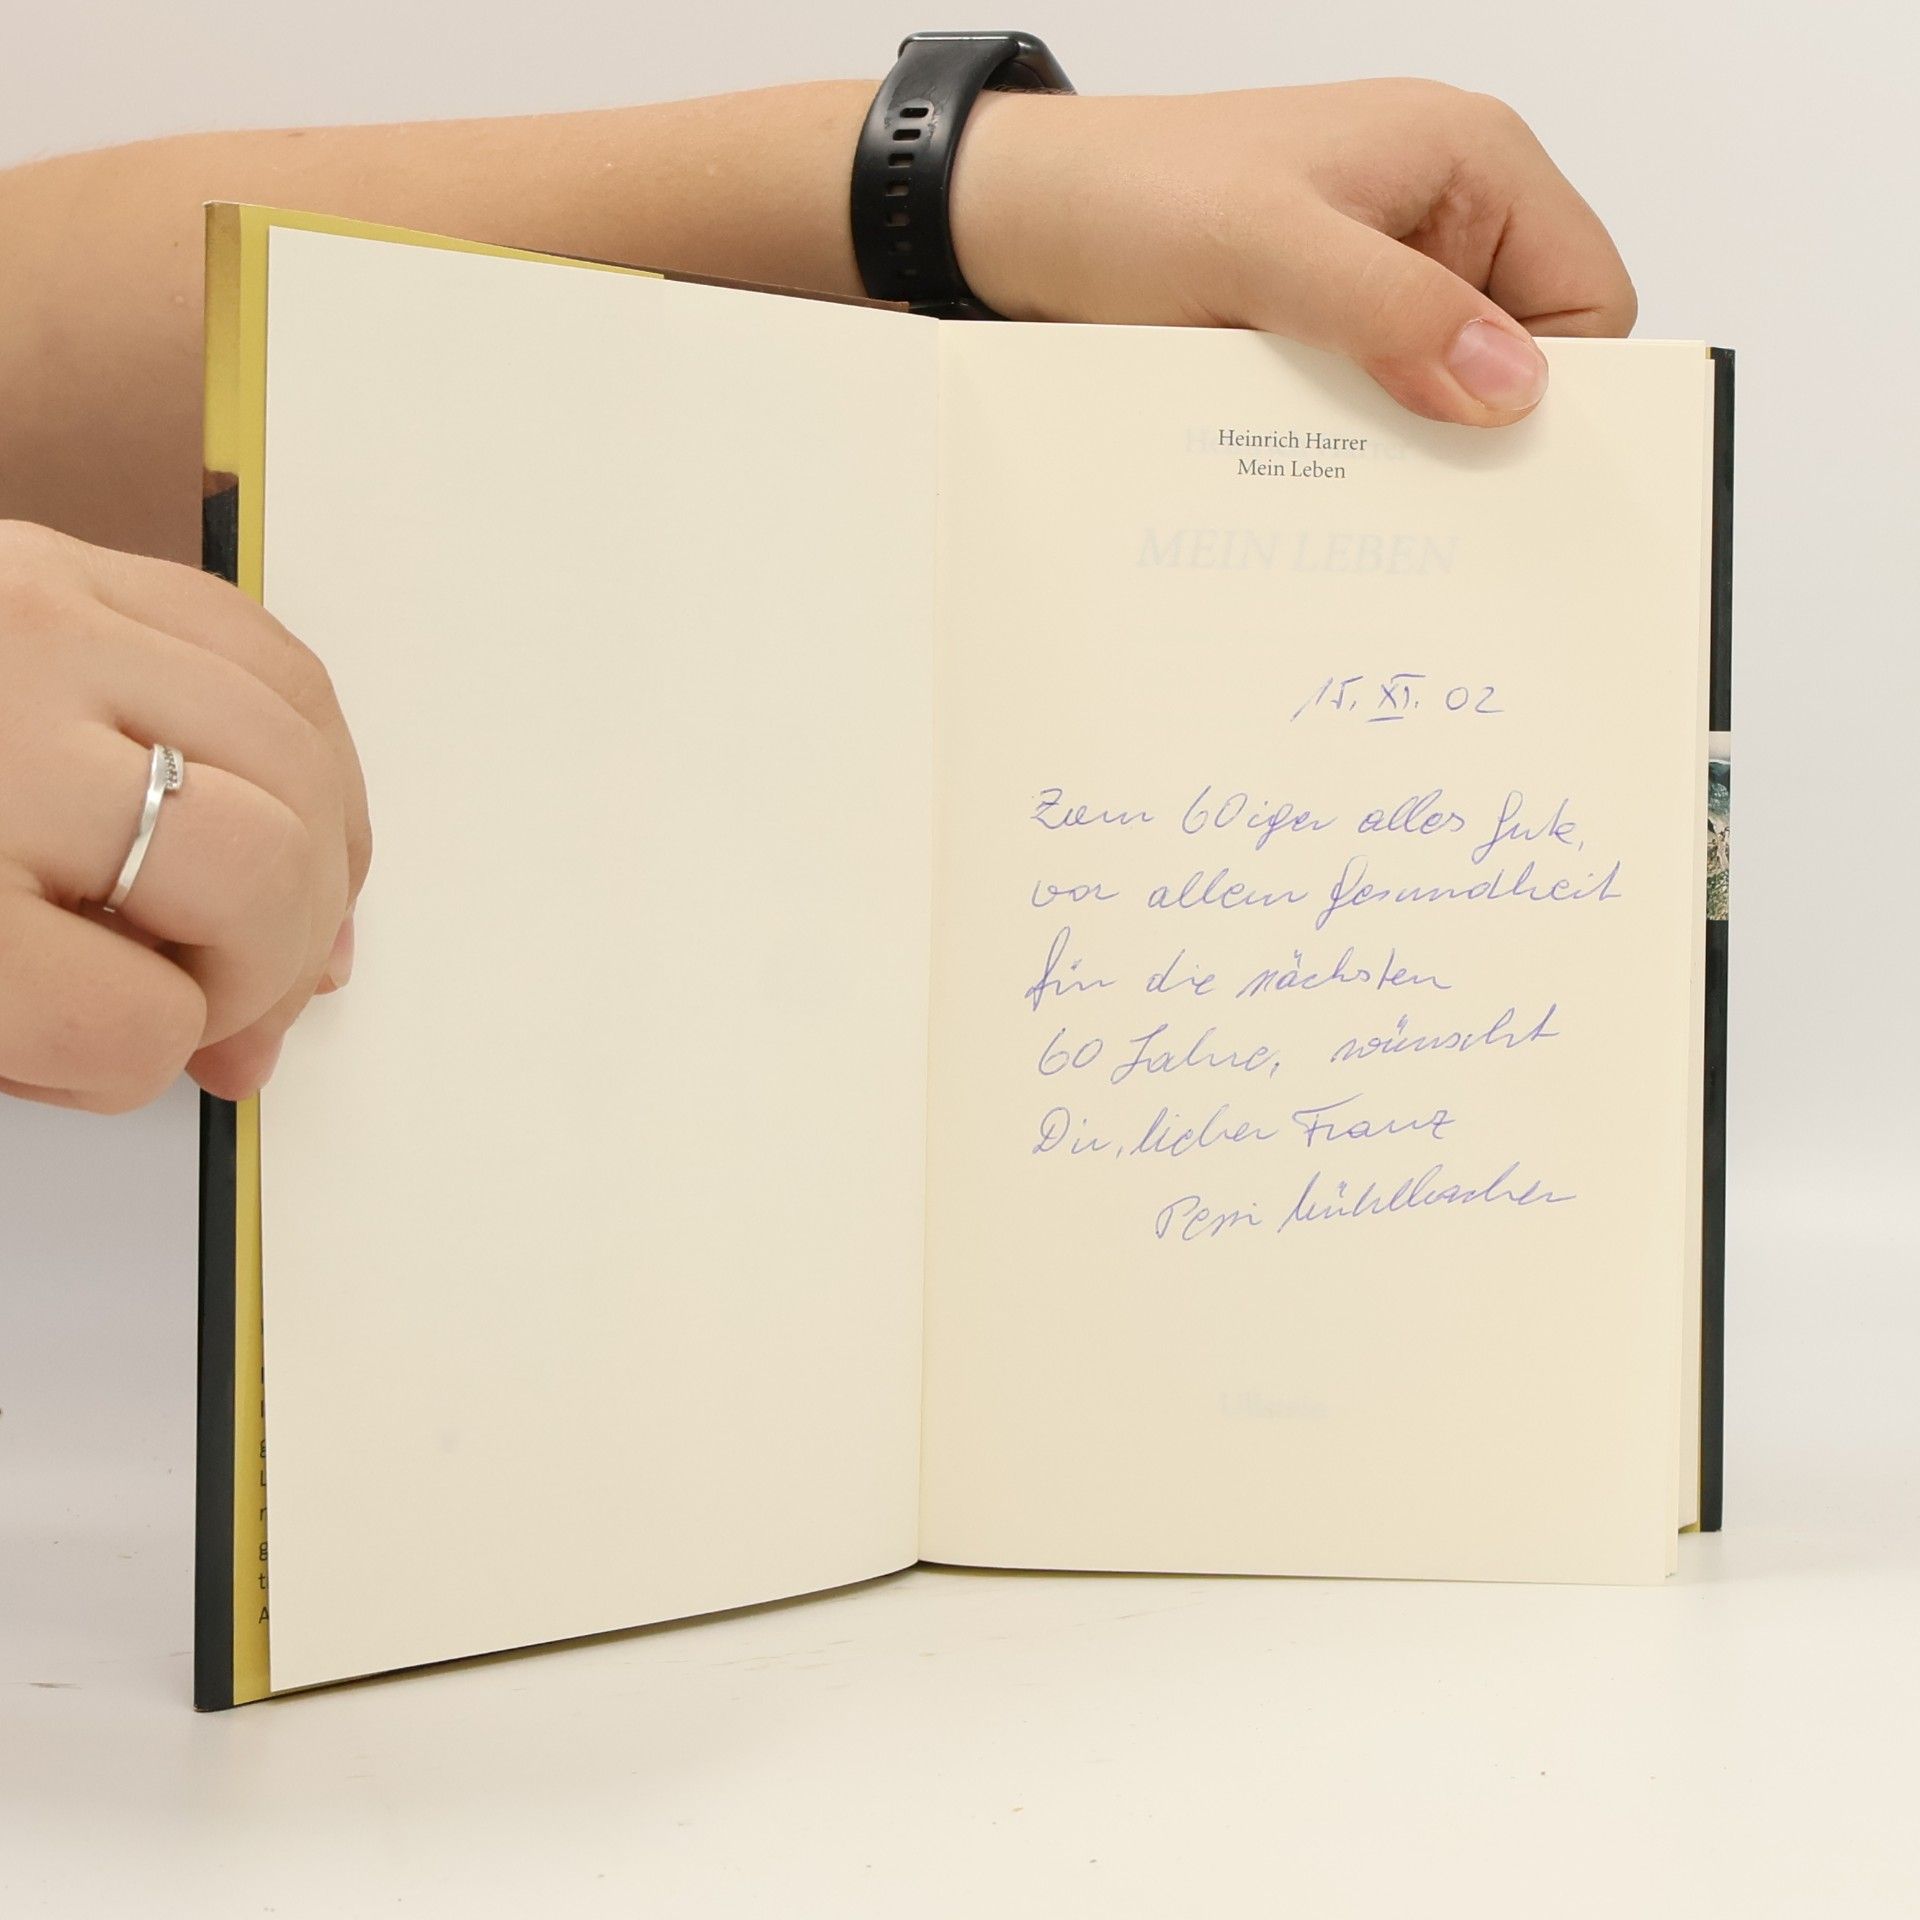 Heinrich Harrer
Mein Leben
MEIN LEBEN
15. XI. 02
Zum 60iger alles Gute,
vor allem Gesundheit
für die nächsten
60 Jahre, wünscht
Dir, lieber Franz
Pepi Mühlbacher
Ullstein
g
L
r
g
t
A